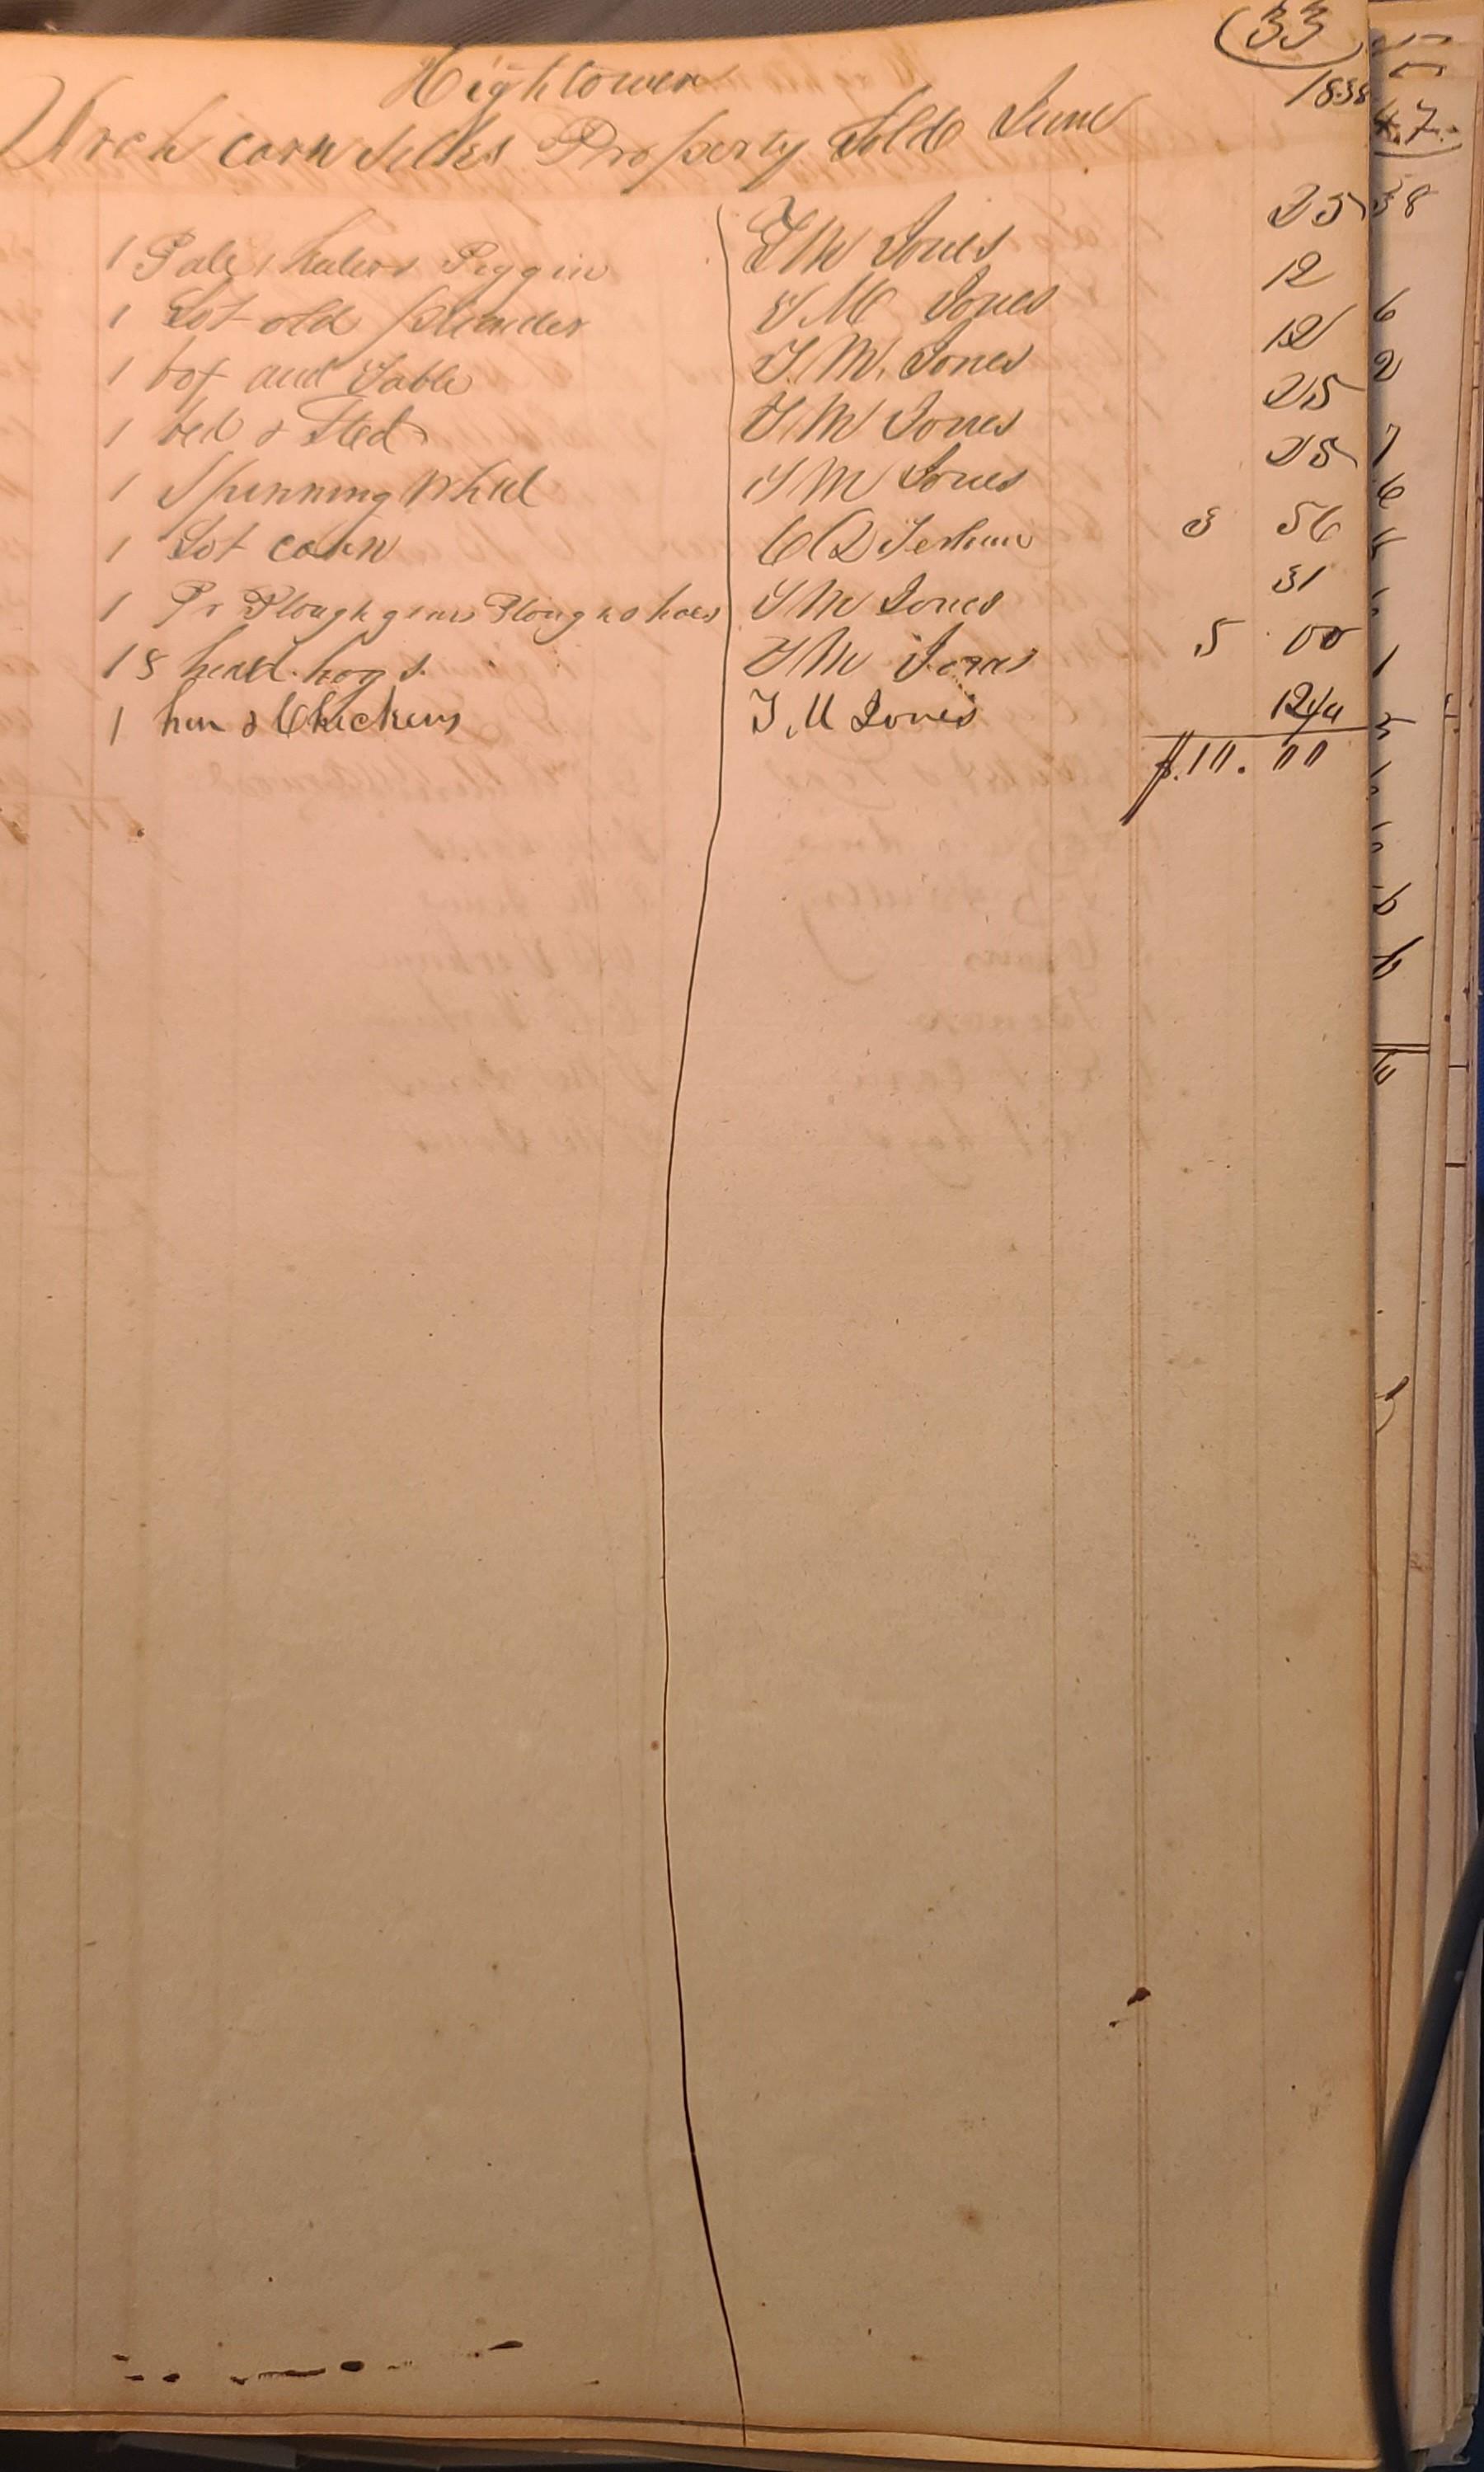 33
Hightower
1838
Urch corn silks Property Sold June
1 Pale & Piggin T M Jones 25
1 Lot old T M Jones 12
1 box and Table T. M. Jones 12
1 bed & Sted T M Jones 25
1 Spinning Wheel T M Jones 25
1 Lot corn C D Terhune 3 56
1 Pr Plough gears Ploughs hoes T M Jones 31
18 head hogs T M Jones 5 00
1 hen & Chickens T. M Jones 12 1/2
$. 10. 00